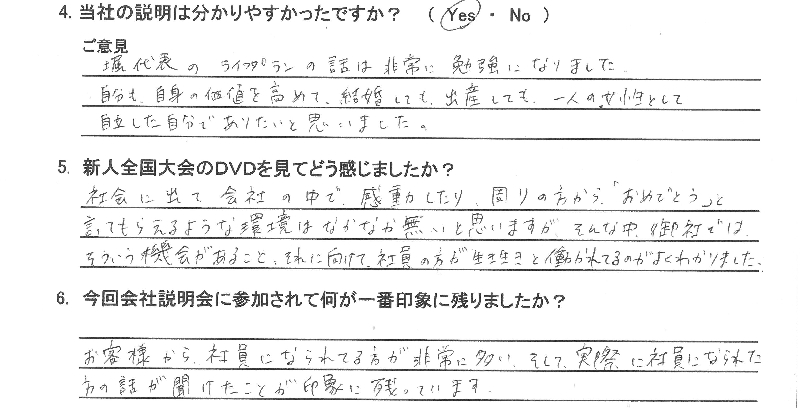 4. 当社の説明は分かりやすかったですか？ （ Yes ・ No ）
ご意見
堀代表のライフプランの話は非常に勉強になりました。
自分も、自身の価値を高めて、結婚しても、出産しても、一人の女性として
自立した自分でありたいと思いました。
5. 新人全国大会のDVDを見てどう感じましたか？
社会に出て会社の中で、感動したり、周りの方から、「おめでとう」と
言ってもらえるような環境はなかなか無いと思いますが、そんな中、御社では、
そういう機会があること、それに向けて、社員の方が生き生きと働かれてるのがよくわかりました。
6. 今回会社説明会に参加されて何が一番印象に残りましたか？
お客様から、社員になられてる方が非常に多い、そして、実際に社員になられた
方の話が聞けたことが印象に残っています。